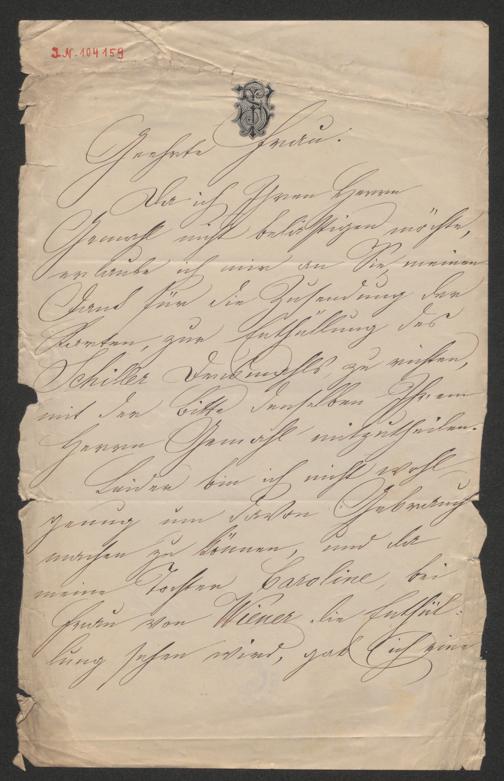 J.N. 104159
Geehrte Frau!
Da ich Ihren Herrn
Gemahl nicht belästigen möchte,
erlaube ich mir an Sie, meinen
Dank für die Zusendung der
Karten, zur Enthüllung des
Schiller Denkmahls, zu richten,
mit der Bitte denselben Ihrem
Herrn Gemahl mitzutheilen.
Leider bin ich nicht wohl
genug um davon Gebrauch
machen zu können, und da
meine Tochter Caroline, bei
Frau von Wiener die Enthül-
lung sehen wird, gab ich eine